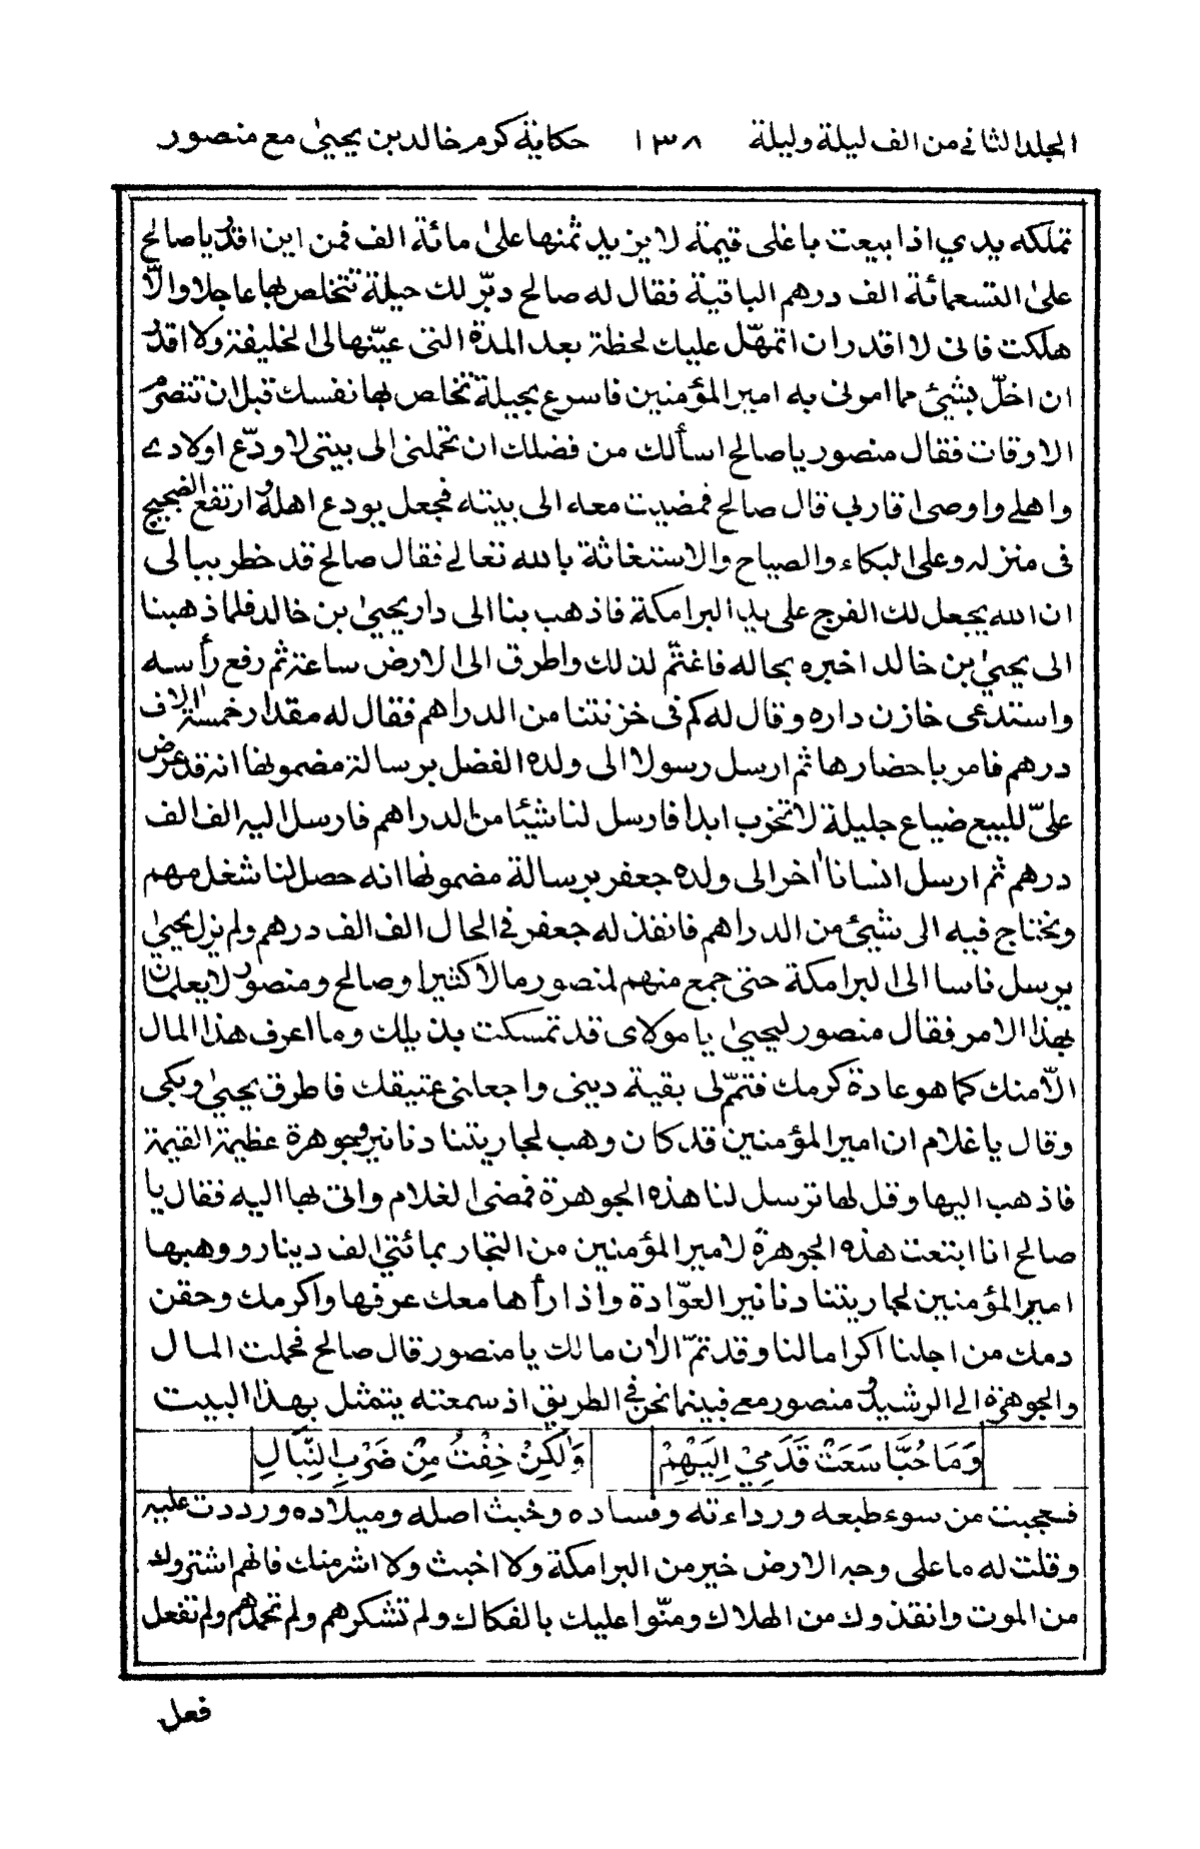 المجلد الثاني من الف ليلة وليلة ١٣٨ حكاية كرم خالد بن يحيىٰ مع منصور
تملكه يدي اذا بيعت باغلى قيمة لا يزيد ثمنها علىٰ مائة الف فمن اين اقدر يا صالح
علىٰ التسعمائة الف درهم الباقية فقال له صالح دبّر لك حيلة تتخلص بها عاجلا والّا
هلكت فانى لا اقدر ان اتمهّل عليك لحظة بعد المدة التى عيّنها لى الخليفة ولا اقدر
ان اخلّ بشيئ مما امرنى به امير المؤمنين فاسرع بحيلة تخلص بها نفسك قبل ان تتصرّم
الاوقات فقال منصور يا صالح اسألك من فضلك ان تحملنى الى بيتى لاودّع اولادى
واهلى واوصى اقاربى قال صالح فمضيت معه الى بيته فجعل يودع اهله وارتفع الضجيج
فى منزله وعلى البكاء والصياح والاستغاثة بالله تعالى فقال صالح قد خطر ببالى
ان الله يجعل لك الفرج على يد البرامكة فاذهب بنا الى دار يحيىٰ بن خالد فلما ذهبنا
الى يحيىٰ بن خالد اخبره بحاله فاغتمّ لذلك واطرق الى الارض ساعة ثم رفع رأسه
واستدعى خازن داره وقال له كم فى خزنتنا من الدراهم فقال له مقدار خمسة آلاف
درهم فامر باحضارها ثم ارسل رسولا الى ولده الفضل برسالة مضمونها انه قد عرض
علىّ للبيع ضياع جليلة لا تخرب ابدا فارسل لنا شيئا من الدراهم فارسل اليه الف الف
درهم ثم ارسل انسانا اٰخر الى ولده جعفر برسالة مضمونها انه حصل لنا شغل مهم
ونحتاج فيه الى شيئ من الدراهم فانفذ له جعفر فى الحال الف الف درهم ولم يزل يحيىٰ
يرسل ناسا الى البرامكة حتى جمع منهم لمنصور مالا كثيرا وصالح ومنصور لا يعلمان
بهذا الامر فقال منصور ليحيىٰ يا مولاى قد تمسكت بذيلك وما اعرف هذا المال
الّا منك كما هو عادة كرمك فتمّم لى بقية دينى واجعلنى عتيقك فاطرق يحيىٰ وبكى
وقال يا غلام ان امير المؤمنين قد كان وهب لجاريتنا دنانير جوهرة عظيمة القيمة
فاذهب اليها وقل لها ترسل لنا هذه الجوهرة فمضى الغلام واتى بها اليه فقال يا
صالح انا ابتعت هذه الجوهرة لامير المؤمنين من التجار بمائتى الف دينار ووهبها
امير المؤمنين لجاريتنا دنانير العوّادة واذا رأها معك عرفها واكرمك وحقن
دمك من اجلنا اكراما لنا وقد تمّ الاٰن مالك يا منصور قال صالح فحملت المال
والجوهرة الى الرشيد ومنصور معى فبينما نحن فى الطريق اذ سمعته يتمثل بهذا البيت
وَمَا حُبًّا سَعَتْ قَدَمِيْ اِلَيْهِمْ وَلٰكِنْ خِفْتُ مِنْ ضَرْبِ النِّبَالِ
فعجبت من سوء طبعه ورداءته وفساده وخبث اصله وميلاده ورددت عليه
وقلت له ما على وجه الارض خير من البرامكة ولا اخبث ولا اشر منك فانهم اشتروك
من الموت وانقذوك من الهلاك ومنّوا عليك بالفكاك ولم تشكرهم ولم تحمدهم ولم تفعل
فعل